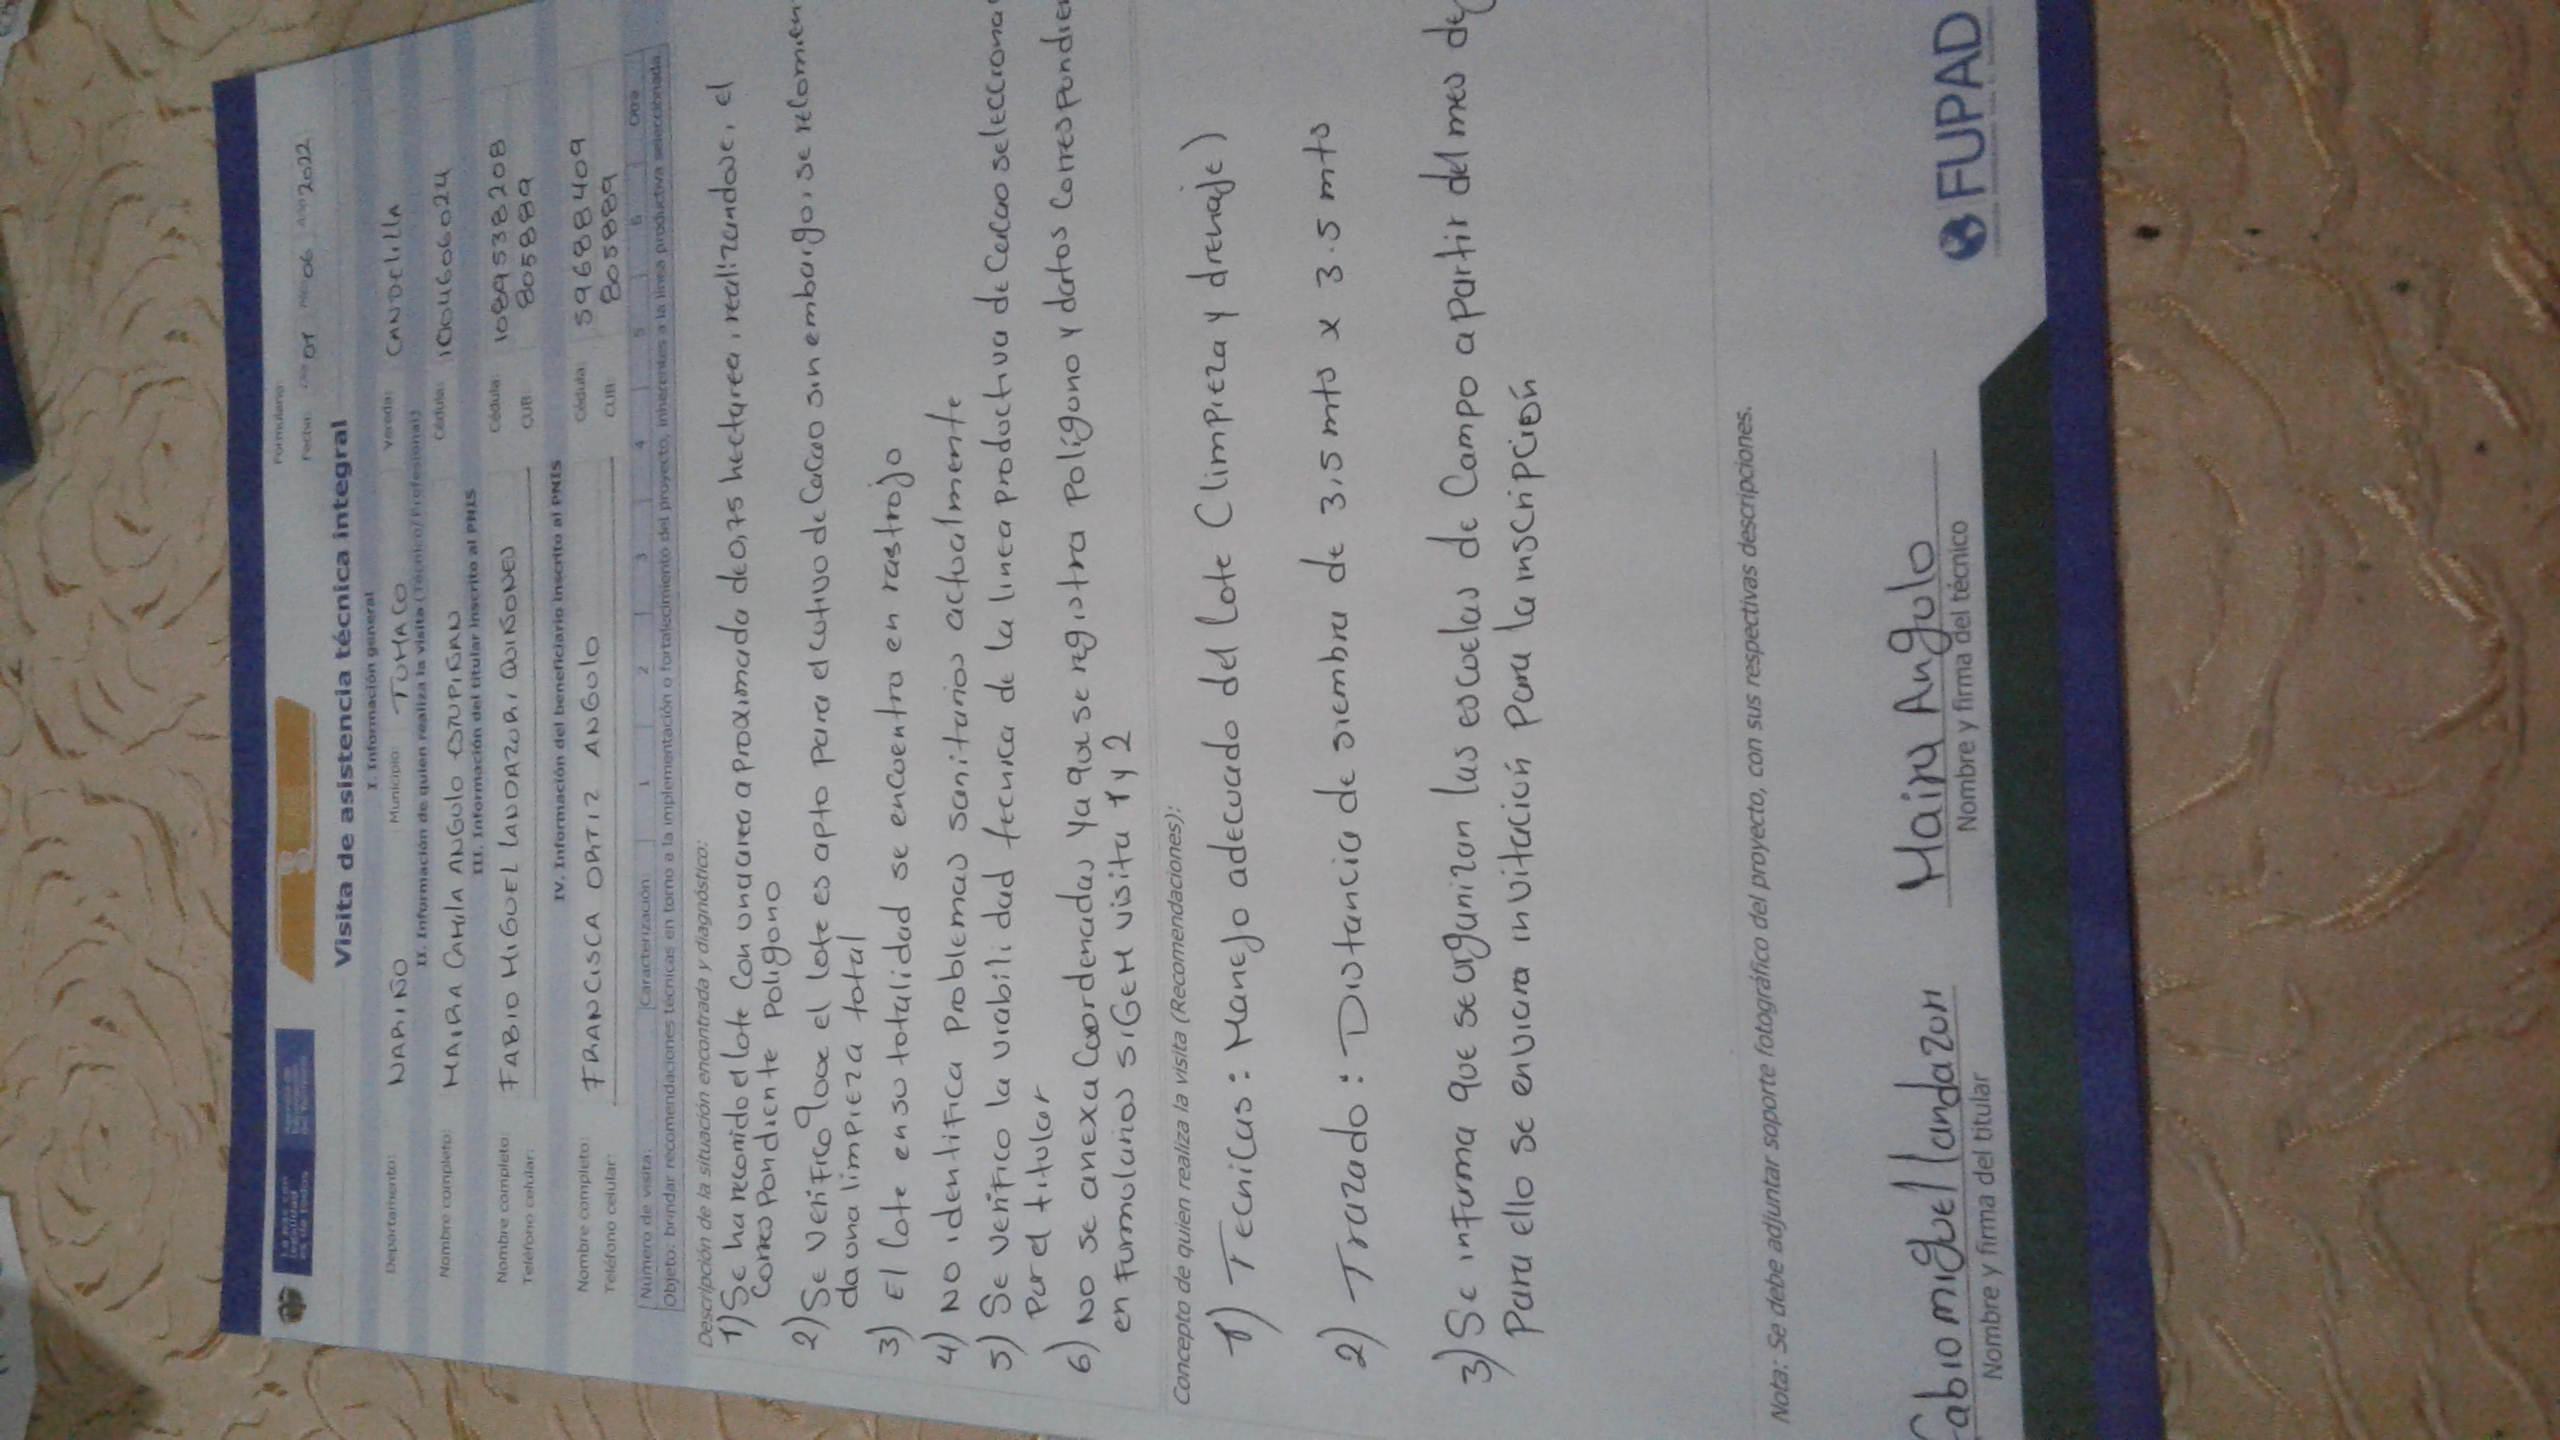 Formulario:
Fecha: Día 01 Mes 06 Año 2022
Visita de asistencia técnica integral
I. Información general
Departamento: NARIÑO Municipio: TUMACO Vereda: CANDELILLA
II. Información de quien realiza la visita (Técnico/Profesional)
Nombre completo: MAIRA CAMILA ANGULO ESTUPIÑAN Cédula: 1004606024
III. Información del titular inscrito al PNIS
Nombre completo: FABIO MIGUEL LANDAZURI QUIÑONES Cédula: 1089538208
Teléfono celular: CUB: 805889
IV. Información del beneficiario inscrito al PNIS
Nombre completo: FRANCISCA ORTIZ ANGULO Cédula: 59688409
Teléfono celular: CUB: 805889
Número de visita: Caracterización 1 2 3 4 5 6 Otra
Objeto: brindar recomendaciones técnicas en torno a la implementación o fortalecimiento del proyecto, inherentes a la línea productiva seleccionada
Descripción de la situación encontrada y diagnóstico:
1) Se ha recorrido el lote con una area aproximada de 0,75 hectarea, realizandose, el
correspondiente poligono
2) Se verifico que el lote es apto para el cultivo de cacao sin embargo, se recomien
da una limpieza total
3) El lote en su totalidad se encuentra en rastrojo
4) No identifica problemas sanitarios actualmente
5) Se verifico la viabilidad tecnica de la linea productiva de cacao selecciona
por el titular
6) No se anexa coordenadas ya que se registra polígono y datos correspondie
en formularios SIGEM visita 1 y 2
Concepto de quien realiza la visita (Recomendaciones):
1) Tecnicas: Manejo adecuado del lote (limpieza y drenaje)
2) Trazado: Distancia de siembra de 3,5 mts x 3.5 mts
3) Se informa que se organizan las escuelas de campo a partir del mes de
Para ello se enviara invitación para la inscripción
Nota: Se debe adjuntar soporte fotográfico del proyecto, con sus respectivas descripciones.
Fabio miguel landazuri Maira Angulo
Nombre y firma del titular Nombre y firma del técnico
FUPAD